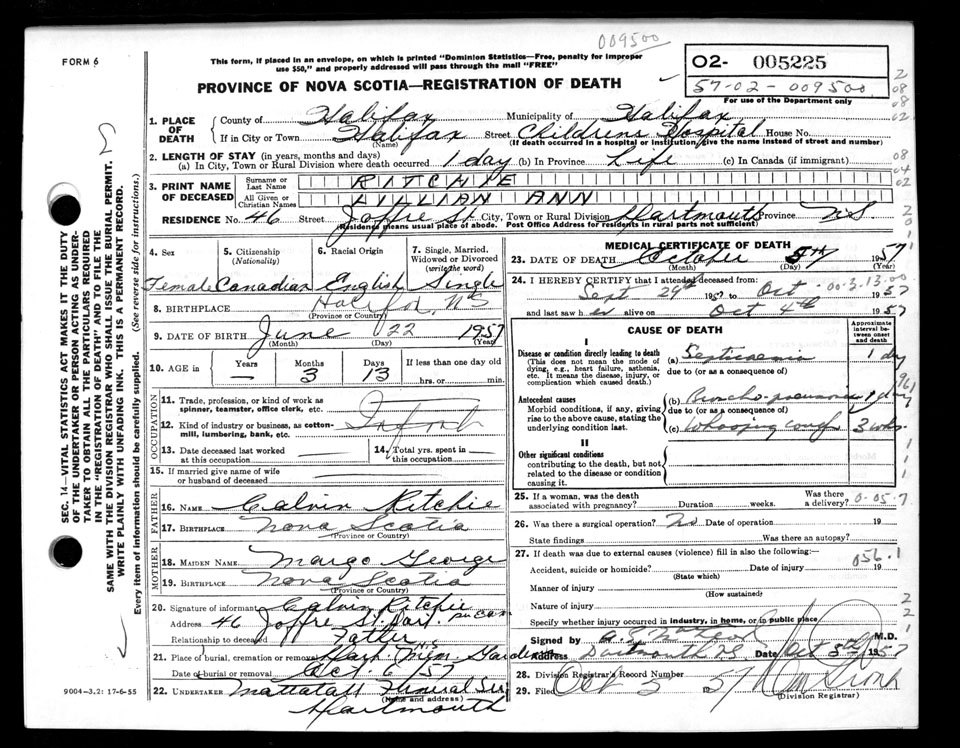 009500
FORM 6
This form, if placed in an envelope, on which is printed "Dominion Statistics—Free, penalty for improper
use $50," and properly addressed will pass through the mail "FREE"
O2- 005225
57-02-009500
For use of the Department only
PROVINCE OF NOVA SCOTIA—REGISTRATION OF DEATH
1. PLACE OF DEATH County of Halifax Municipality of Halifax
If in City or Town Halifax Street Childrens Hospital House No.
(Name) (If death occurred in a hospital or institution, give the name instead of street and number)
2. LENGTH OF STAY (in years, months and days)
(a) In City, Town or Rural Division where death occurred 1 day (b) In Province Life (c) In Canada (if immigrant)
3. PRINT NAME OF DECEASED Surname or Last Name RITCHIE
All Given or Christian Names LILLIAN ANN
RESIDENCE No. 46 Street Joffre St. City, Town or Rural Division Dartmouth Province N.S.
Residence means usual place of abode. Post Office Address for residents in rural parts not sufficient)
4. Sex 5. Citizenship (Nationality) 6. Racial Origin 7. Single, Married, Widowed or Divorced (write the word)
Female Canadian English Single
8. BIRTHPLACE Halifax, NS
(Province or Country)
9. DATE OF BIRTH June 22 1957
(Month) (Day) (Year)
10. AGE in Years — Months 3 Days 13 If less than one day old
hrs. or min.
OCCUPATION
11. Trade, profession, or kind of work as
spinner, teamster, office clerk, etc.
12. Kind of industry or business, as cotton-
mill, lumbering, bank, etc. Infant
13. Date deceased last worked
at this occupation
14. Total yrs. spent in
this occupation
15. If married give name of wife
or husband of deceased
FATHER
16. NAME Calvin Ritchie
17. BIRTHPLACE Nova Scotia
(Province or Country)
MOTHER
18. MAIDEN NAME Margo George
19. BIRTHPLACE Nova Scotia
(Province or Country)
20. Signature of informant Calvin Ritchie
Address 46 Joffre St. Dart.
Relationship to deceased Father
21. Place of burial, cremation or removal Dart. Mem. Gardens
Date of burial or removal Oct. 6/57
22. UNDERTAKER Mattatall Funeral Ser
(Name and address)
Dartmouth
MEDICAL CERTIFICATE OF DEATH
23. DATE OF DEATH October 5th 1957
(Month) (Day) (Year)
24. I HEREBY CERTIFY that I attended deceased from:
Sept 29th 1957 to Oct 1957
00-3-13.00
and last saw her alive on Oct 4th 1957
CAUSE OF DEATH
Approximate interval between onset and death
I
Disease or condition directly leading to death
(This does not mean the mode of
dying, e.g., heart failure, asthenia,
etc. It means the disease, injury, or
complication which caused death.)
(a) Septicaemia 1 day
due to (or as a consequence of)
Antecedent causes
Morbid conditions, if any, giving
rise to the above cause, stating the
underlying condition last.
(b) Broncho-pneumonia
due to (or as a consequence of)
(c) Whooping cough 3 wks.
II
Other significant conditions
contributing to the death, but not
related to the disease or condition
causing it.
25. If a woman, was the death
associated with pregnancy? Duration weeks. Was there a delivery? 0-05-7
26. Was there a surgical operation? No Date of operation 19
State findings Was there an autopsy?
27. If death was due to external causes (violence) fill in also the following:
056.1
Accident, suicide or homicide? Date of injury 19
(State which)
Manner of injury
(How sustained)
Nature of injury
Specify whether injury occurred in industry, in home, or in public place
Signed by M.D.
Address Dartmouth N.S. Date Oct 5th 1957
28. Division Registrar's Record Number
29. Filed Oct 5 57
(Division Registrar)
SEC. 14—VITAL STATISTICS ACT MAKES IT THE DUTY
OF THE UNDERTAKER OR PERSON ACTING AS UNDER-
TAKER TO OBTAIN ALL THE PARTICULARS REQUIRED
IN THE "REGISTRATION OF DEATH" AND TO FILE THE
SAME WITH THE DIVISION REGISTRAR WHO SHALL ISSUE THE BURIAL PERMIT.
WRITE PLAINLY WITH UNFADING INK. THIS IS A PERMANENT RECORD.
Every item of information should be carefully supplied. (See reverse side for instructions.)
9004-3,2: 17-6-55